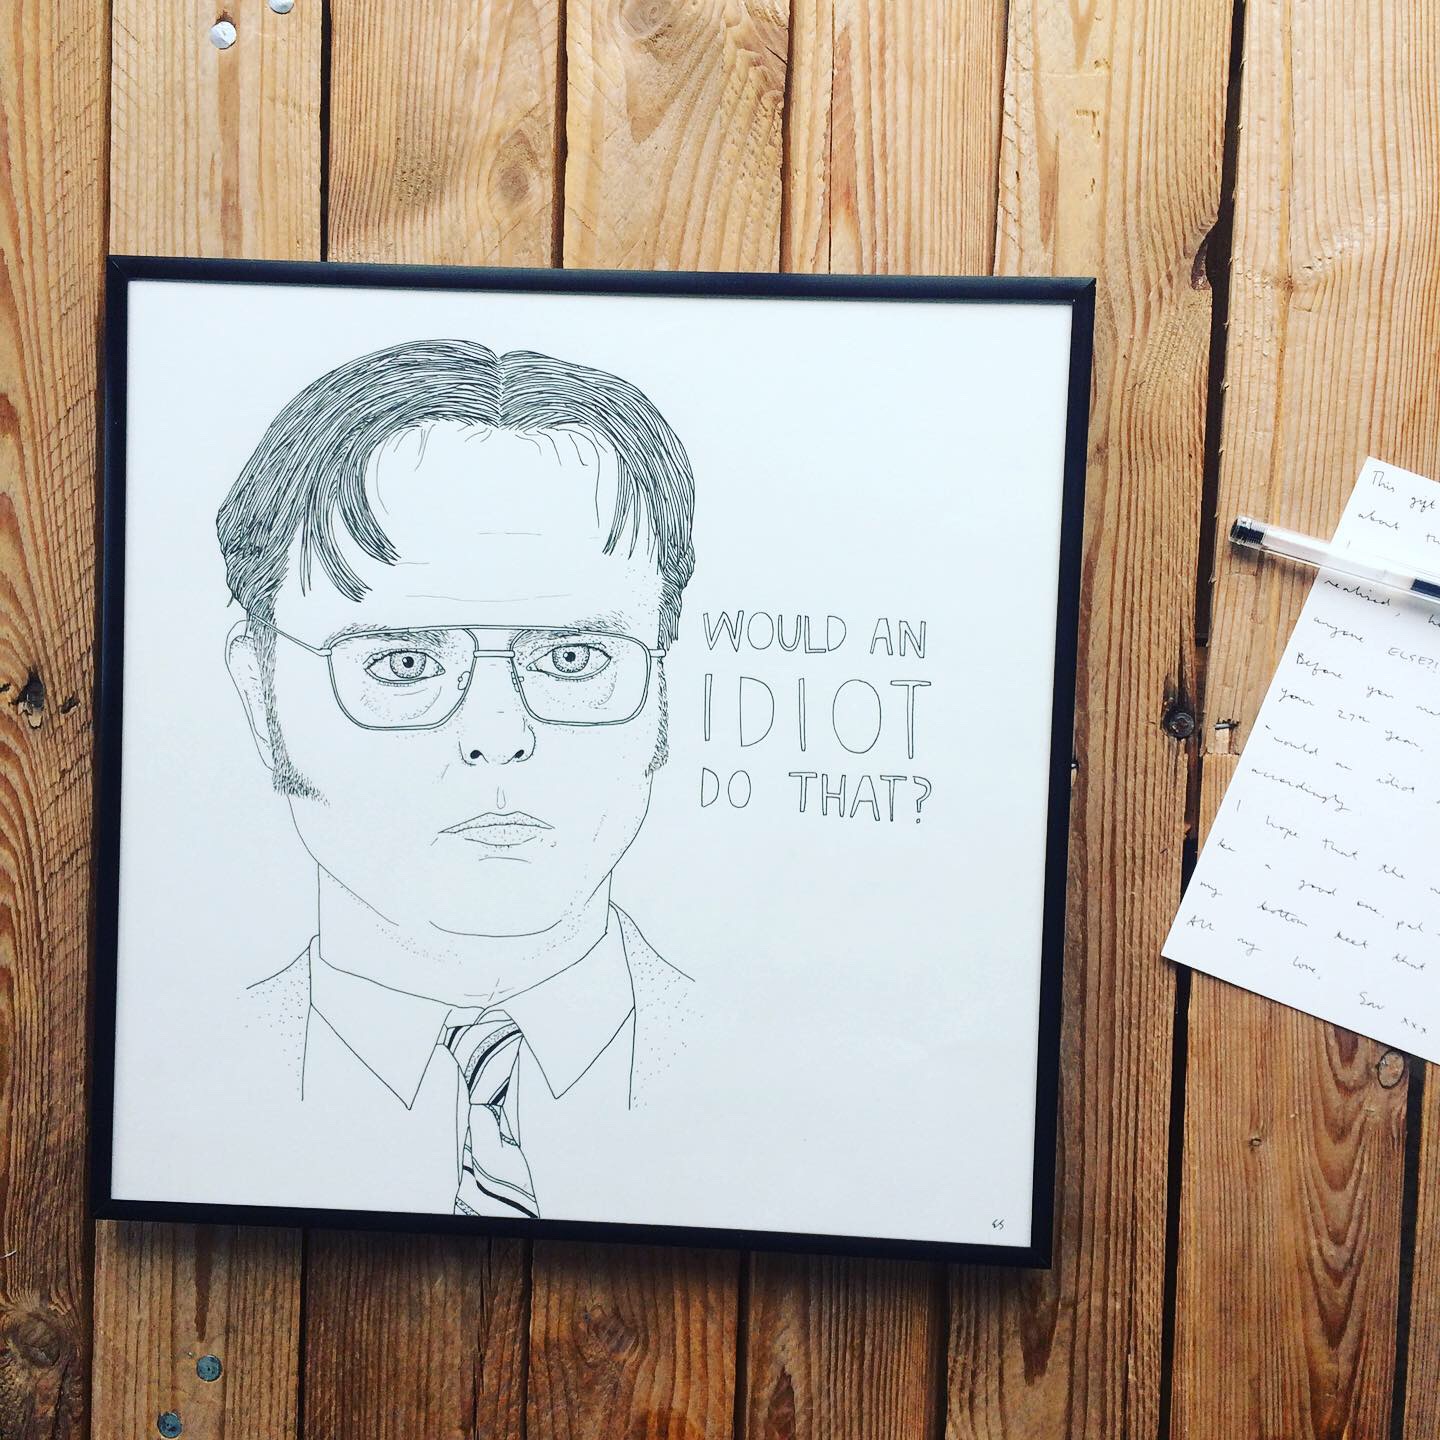 WOULD AN
IDIOT
DO THAT?
ES
This gift
about th
realised, h
anyone ELSE?!
Before you ma
your 27th year,
would an idiot
accordingly.
I hope that the n
be a good one, pal
my bottom keet that
All my love,
Sav xxx